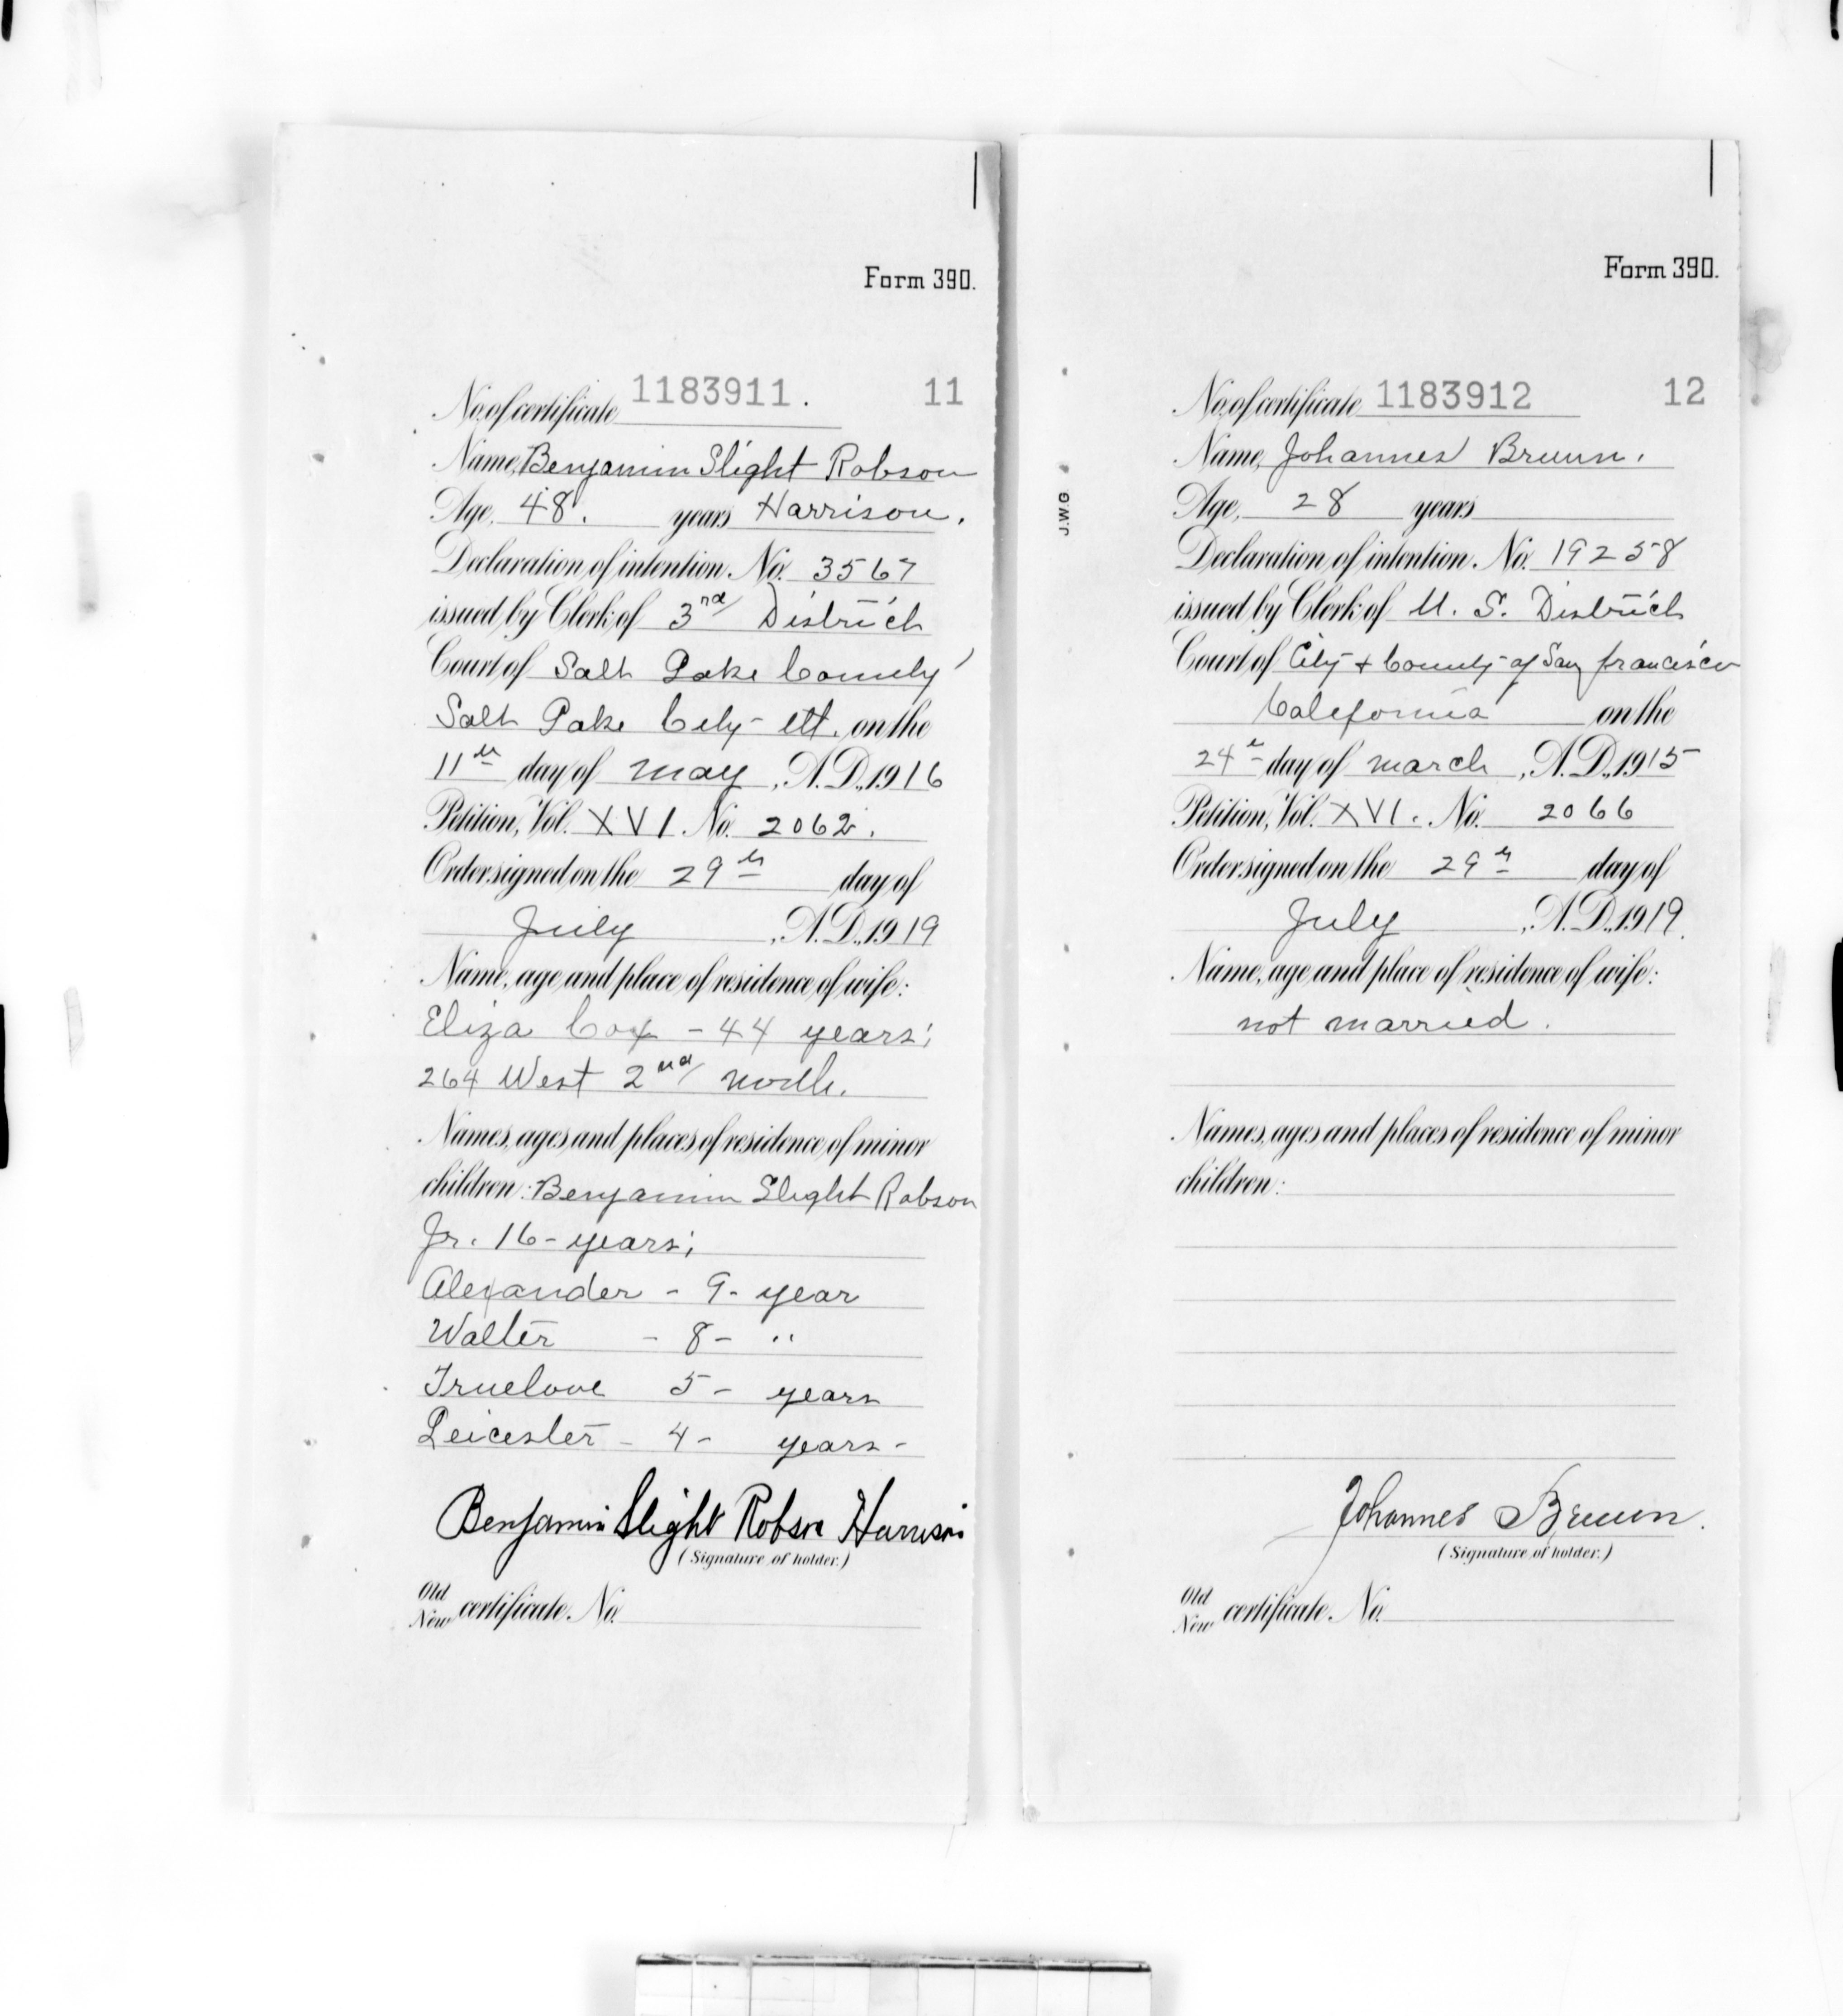 Form 390.
No. of certificate 1183911. 11
Name, Benjamin Slight Robson
Age, 48. years Harrison.
Declaration of intention. No. 3567
issued by Clerk of 3rd District
Court of Salt Lake County
Salt Lake City - Ut. on the
11th day of May, A.D., 1916
Petition, Vol. XVI. No. 2062.
Order signed on the 29th day of
July, A.D., 1919
Name, age and place of residence of wife:
Eliza Cox - 44 years;
264 West 2nd North.
Names, ages and places of residence of minor
children: Benjamin Slight Robson
Jr. 16 - years;
Alexander - 9 - year
Walter - 8 - "
Truelove 5 - years
Leicester - 4 - years -
Benjamin Slight Robson Harrison
(Signature of holder.)
Old
New certificate. No.
Form 390.
J.W.G
No. of certificate 1183912 12
Name, Johannes Bruun.
Age, 28 years
Declaration of intention. No. 19258
issued by Clerk of U. S. District
Court of City + County of San Francisco
California on the
24th day of March, A.D., 1915
Petition, Vol. XVI. No. 2066
Order signed on the 29th day of
July, A.D., 1919.
Name, age and place of residence of wife:
not married.
Names, ages and places of residence of minor
children:
Johannes Bruun.
(Signature of holder.)
Old
New certificate. No.